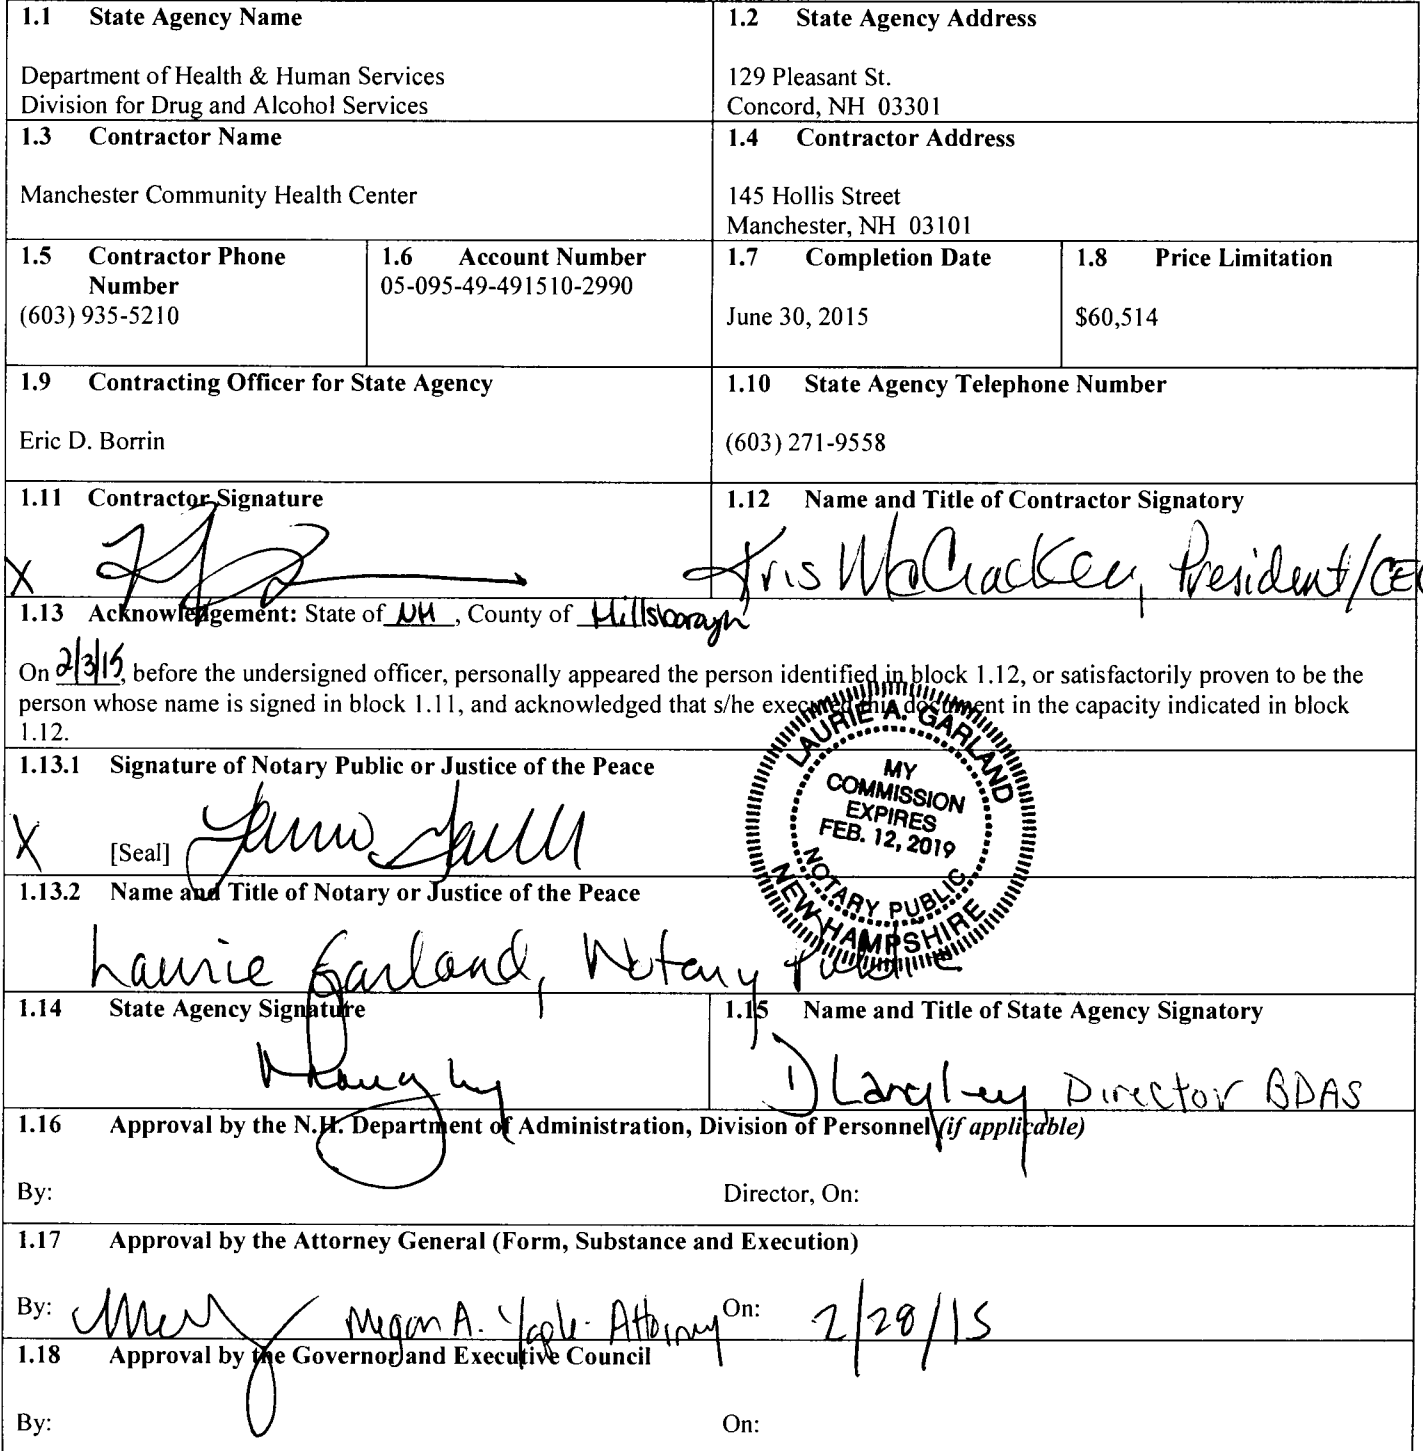 1.1 State Agency Name
Department of Health & Human Services
Division for Drug and Alcohol Services
1.2 State Agency Address
129 Pleasant St.
Concord, NH 03301
1.3 Contractor Name
Manchester Community Health Center
1.4 Contractor Address
145 Hollis Street
Manchester, NH 03101
1.5 Contractor Phone
Number
(603) 935-5210
1.6 Account Number
05-095-49-491510-2990
1.7 Completion Date
June 30, 2015
1.8 Price Limitation
$60,514
1.9 Contracting Officer for State Agency
Eric D. Borrin
1.10 State Agency Telephone Number
(603) 271-9558
1.11 Contractor Signature
X
1.12 Name and Title of Contractor Signatory
Kris McCracken, President/CEO
1.13 Acknowledgement: State of NH, County of Hillsborough
On 2/3/15, before the undersigned officer, personally appeared the person identified in block 1.12, or satisfactorily proven to be the
person whose name is signed in block 1.11, and acknowledged that s/he executed this document in the capacity indicated in block
1.12.
1.13.1 Signature of Notary Public or Justice of the Peace
X
[Seal]
LAURIE A. GARLAND
MY
COMMISSION
EXPIRES
FEB. 12, 2019
NOTARY PUBLIC
NEW HAMPSHIRE
1.13.2 Name and Title of Notary or Justice of the Peace
Laurie Garland, Notary Public
1.14 State Agency Signature
1.15 Name and Title of State Agency Signatory
D Langley, Director BDAS
1.16 Approval by the N.H. Department of Administration, Division of Personnel (if applicable)
By:
Director, On:
1.17 Approval by the Attorney General (Form, Substance and Execution)
By: Megan A. Yaple - Attorney On: 2/28/15
1.18 Approval by the Governor and Executive Council
By:
On: